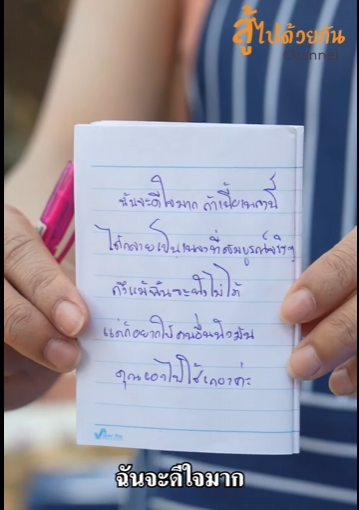 สู้ไปด้วยกัน
channel
ฉันจะดีใจมาก ถ้าเนื้อเพลงนี้
ได้กลายเป็นเพลงที่สมบูรณ์จริงๆ
ถึงแม้ฉันจะฟังไม่ได้
แต่ก็อยากให้คนอื่นฟังมัน
คุณเอาไปใช้เถอะค่ะ
ฉันจะดีใจมาก